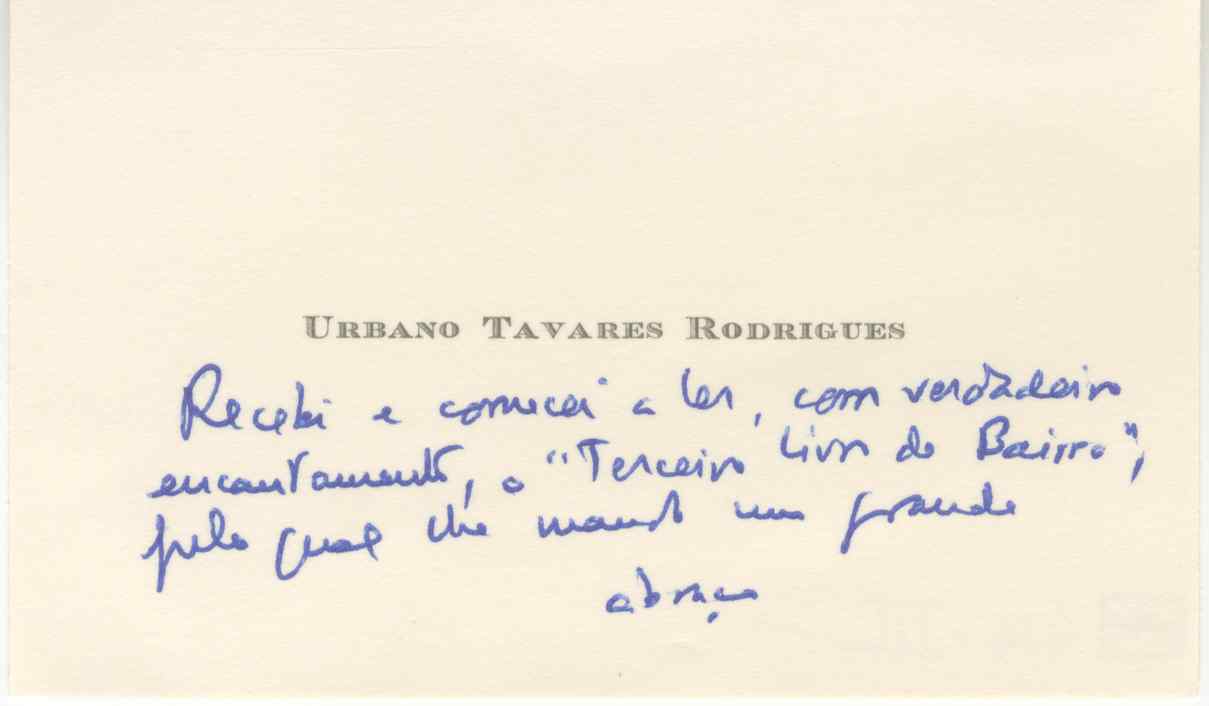 URBANO TAVARES RODRIGUES
Recebi e comecei a ler, com verdadeiro
encantamento, o "Terceiro Livro do Bairro",
pelo qual lhe mando um grande
abraço